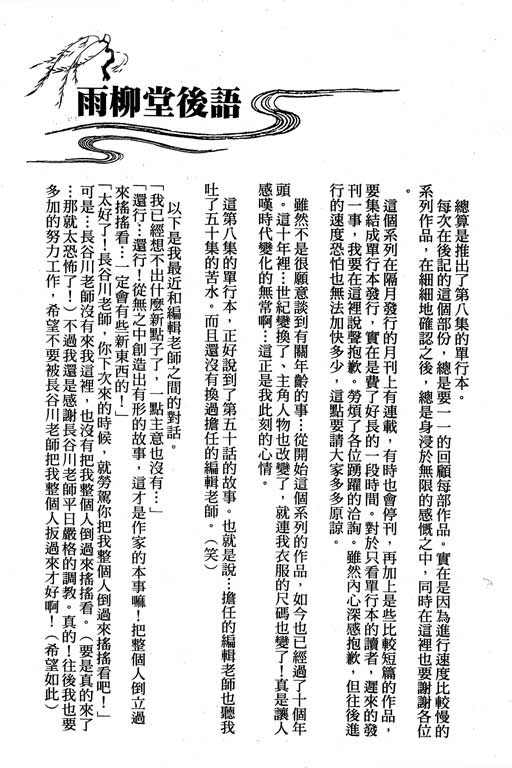 雨柳堂後語
總算是推出了第八集的單行本。
每次在後記的這個部份，總是要一一的回顧每部作品。實在是因為進行速度比較慢的
系列作品，在細細地確認之後，總是身浸於無限的感慨之中，同時在這裡也要謝謝各位
。
這個系列在隔月發行的月刊上有連載，有時也會停刊，再加上是些比較短篇的作品，
要集結成單行本發行，實在是費了好長的一段時間。對於只看單行本的讀者，遲來的發
刊一事，我要在這裡說聲抱歉。勞煩了各位踴躍的洽詢。雖然內心深感抱歉，但往後進
行的速度恐怕也無法加快多少，這點要請大家多多原諒。
雖然不是很願意談到有關年齡的事…從開始這個系列的作品，如今也已經過了十個年
頭。這十年裡…世紀變換了、主角人物也改變了，就連我衣服的尺碼也變了！真是讓人
感嘆時代變化的無常啊…這正是我此刻的心情。
這第八集的單行本，正好說到了第五十話的故事。也就是說…擔任的編輯老師也聽我
吐了五十集的苦水。而且還沒有換過擔任的編輯老師。（笑）
以下是我最近和編輯老師之間的對話。
「我已經想不出什麼新點子了，一點主意也沒有…」
「還行…還行！從無之中創造出有形的故事，這才是作家的本事嘛！把整個人倒立過
來搖搖看…一定會有些新東西的！」
「太好了！長谷川老師，你下次來的時候，就勞駕你把我整個人倒過來搖搖看吧！」
可是…長谷川老師沒有來我這裡，也沒有把我整個人倒過來搖搖看。（要是真的來了
…那就太恐怖了！）不過我還是感謝長谷川老師平日嚴格的調教。真的！往後我也要
多加的努力工作，希望不要被長谷川老師把我整個人扳過來才好啊！（希望如此）